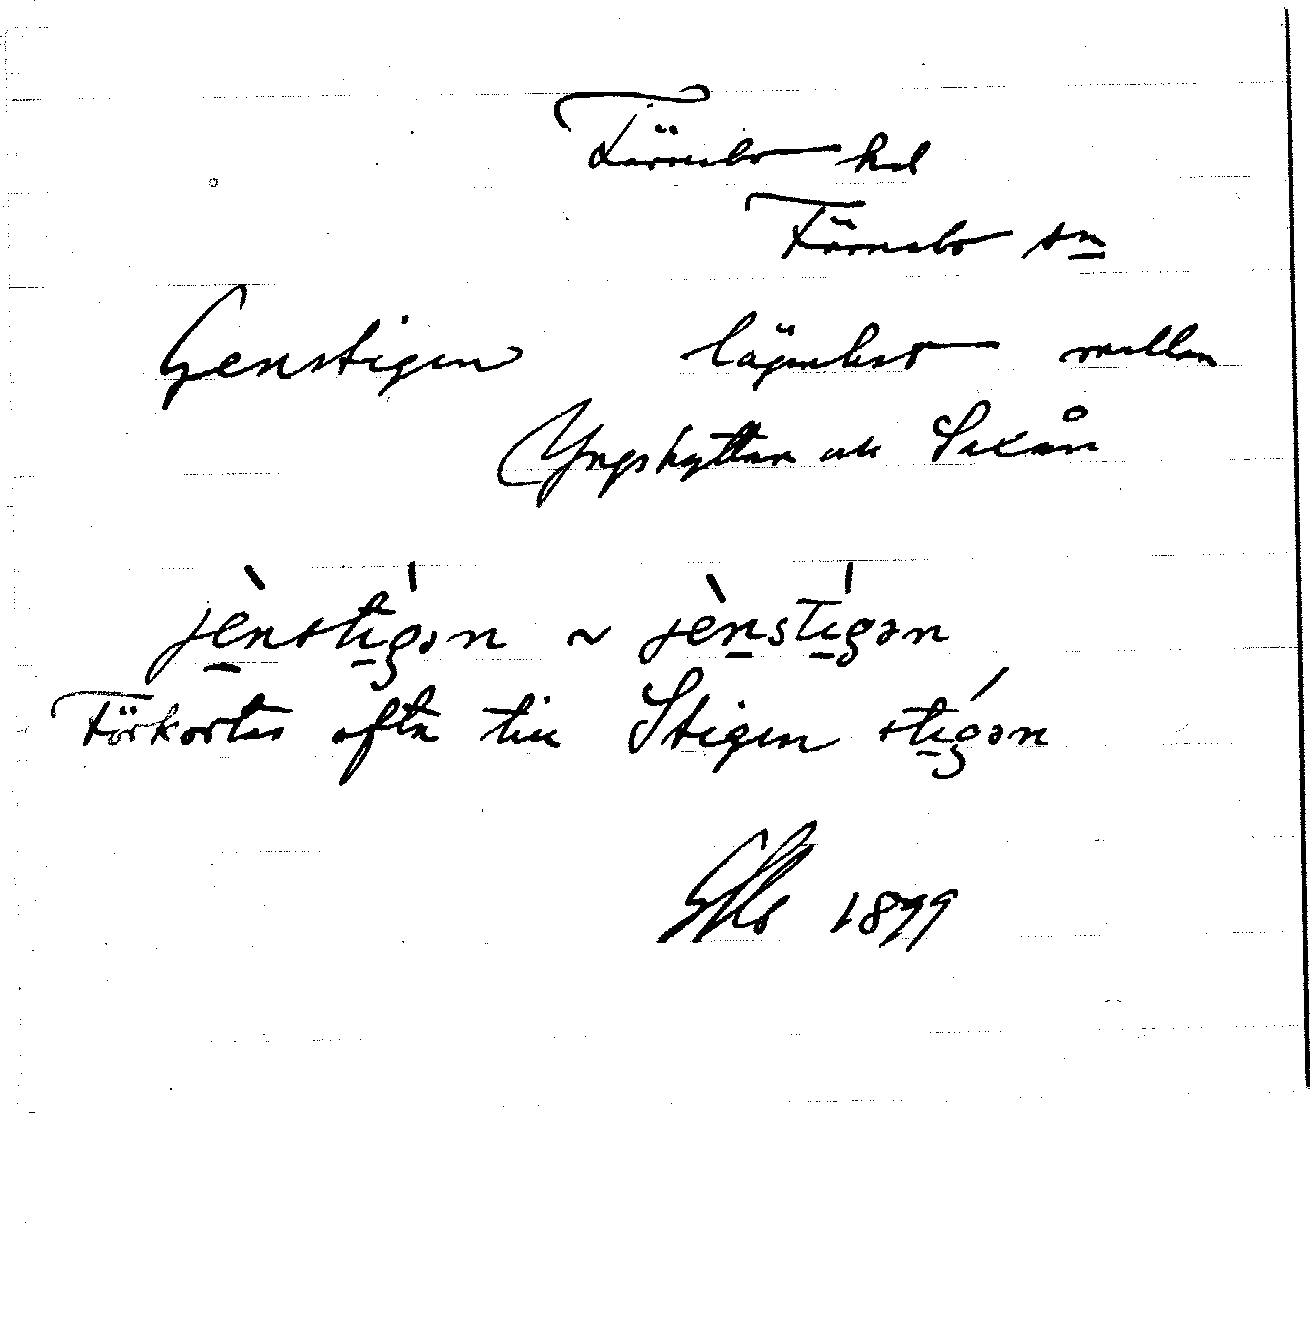 Färnebo hd
Färnebo sn
Genstigen lägenhet mellan
Yngshyttan och Saxån
jènstígən ~ jènstígən
Förkortas ofta till Stigen stígən
1899